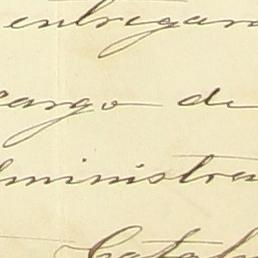 entregar
cargo de
dministra
Catal